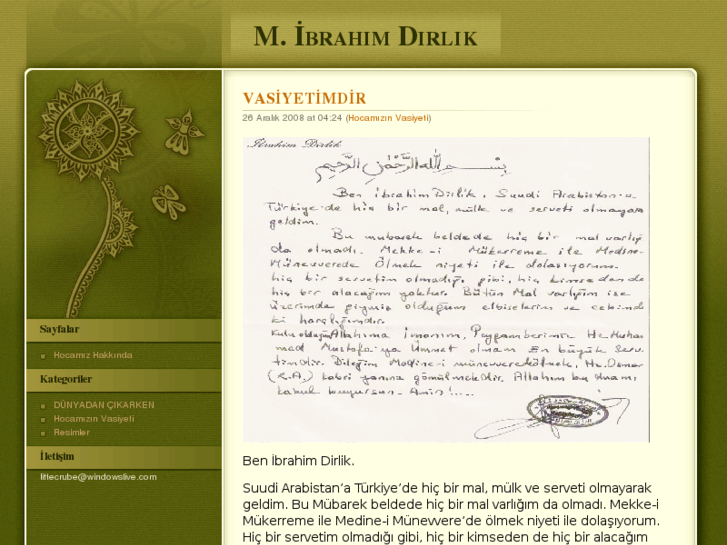 M. İBRAHIM DIRLIK
VASİYETİMDİR
26 Aralık 2008 at 04:24 (Hocamızın Vasiyeti)
İbrahim Dirlik
بسم الله الرحمن الرحيم
Ben İbrahim Dirlik. Suudi Arabistan-a
Türkiye-de hiç bir mal, mülk ve serveti olmayarak
geldim.
Bu mubarek beldede hiç bir mal varlığı
da olmadı. Mekke-i Mükerreme ile Medine-i
Münevverede Ölmek niyeti ile dolaşıyorum.
hiç bir servetim olmadığı gibi, hiç kimseden de
hiç bir alacağım yoktur. Bütün Mal varlığım ise
üzerimde giymiş olduğum elbiselerim ve cebimd
ki harçlığımdır.
Kulu olduğum Allahıma imanım, Peygamberimiz Hz. Muham
med Mustafa-ya Ümmet olmam En büyük Serv
timdir. Dileğim Medine-i münevveredeki, Hz. Osman
(R.A.) kabri yanına gömülmekdir. Allahım bu duamı
kabul buyursun. Amin!....
Ben İbrahim Dirlik.
Suudi Arabistan’a Türkiye’de hiç bir mal, mülk ve serveti olmayarak
geldim. Bu Mübarek beldede hiç bir mal varlığım da olmadı. Mekke-i
Mükerreme ile Medine-i Münevvere’de ölmek niyeti ile dolaşıyorum.
Hiç bir servetim olmadığı gibi, hiç bir kimseden de hiç bir alacağım
Sayfalar
Hocamız Hakkında
Kategoriler
DÜNYADAN ÇIKARKEN
Hocamızın Vasiyeti
Resimler
İletişim
littecrube@windowslive.com